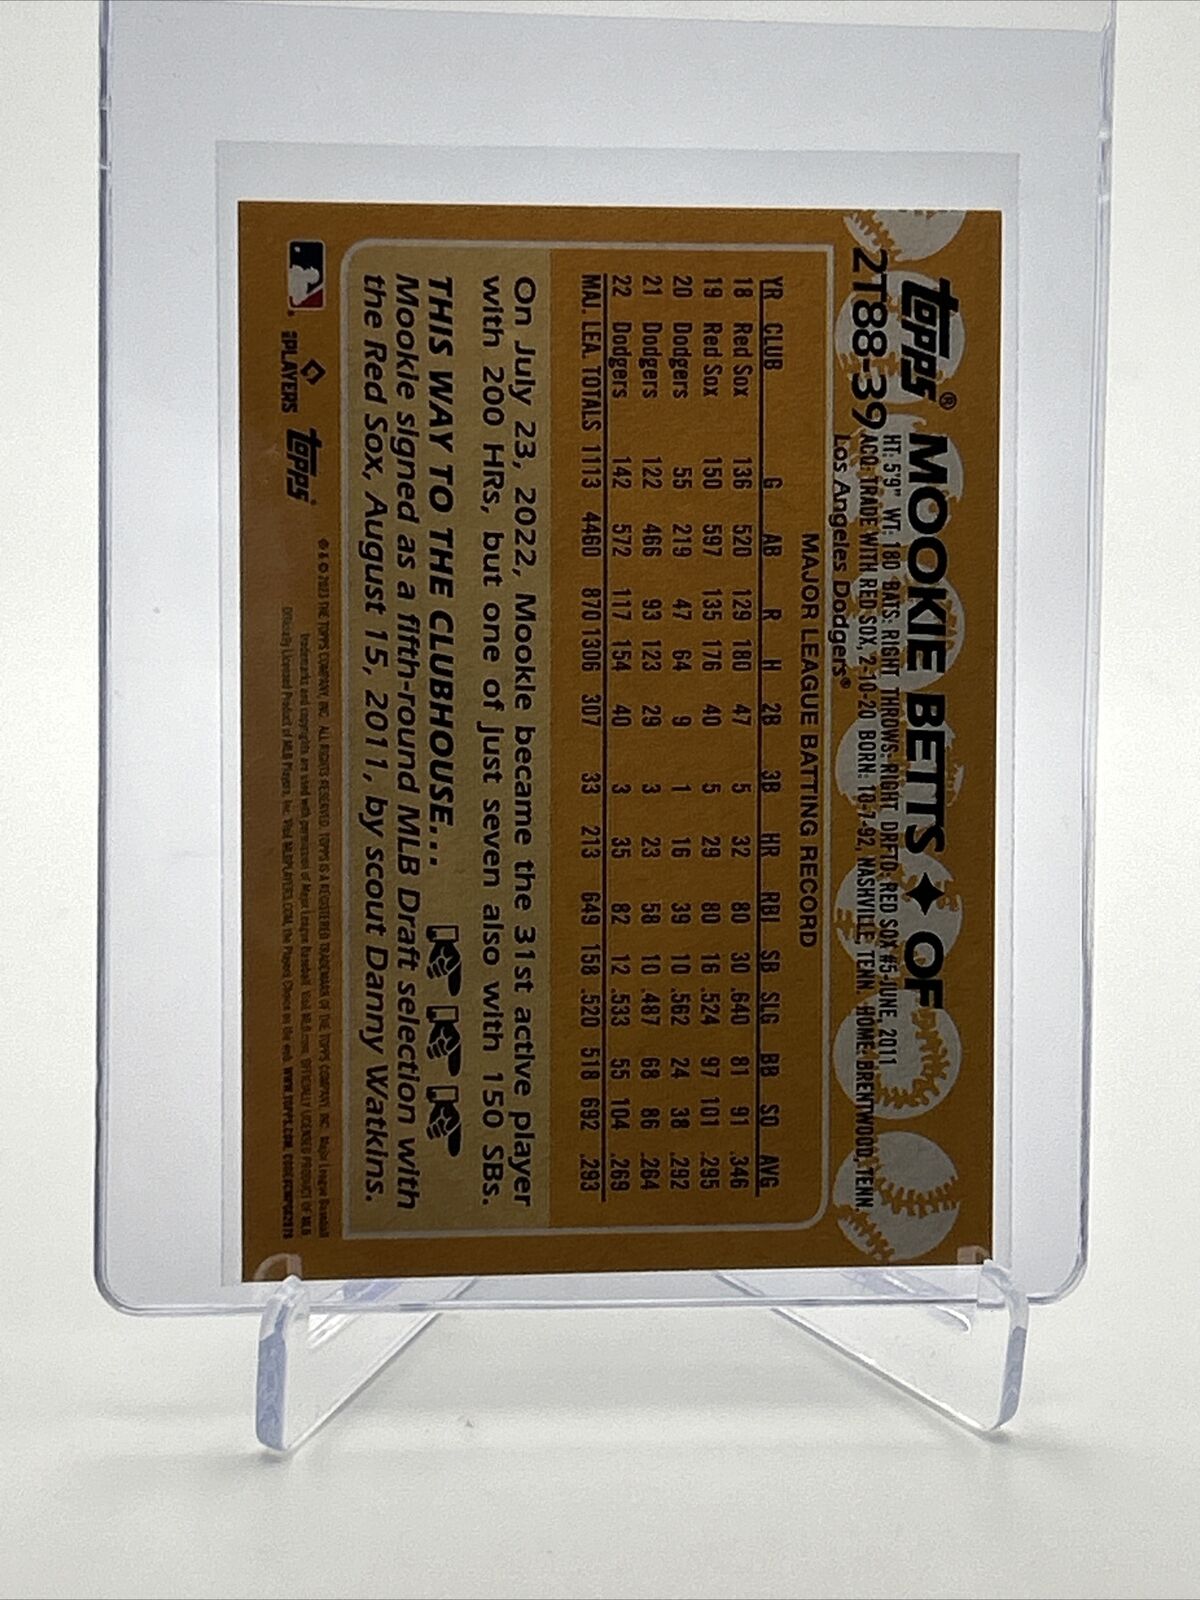 topps®
2T88-39
MOOKIE BETTS ✦ OF
HT: 5'9" WT: 180 BATS: RIGHT THROWS: RIGHT DRFTD: RED SOX #5-JUNE, 2011
ACQ: TRADE WITH RED SOX, 2-10-20 BORN: 10-7-92, NASHVILLE, TENN. HOME: BRENTWOOD, TENN.
Los Angeles Dodgers®
MAJOR LEAGUE BATTING RECORD
YR CLUB G AB R H 2B 3B HR RBI SB SLG BB SO AVG
18 Red Sox 136 520 129 180 47 5 32 80 30 .640 81 91 .346
19 Red Sox 150 597 135 176 40 5 29 80 16 .524 97 101 .295
20 Dodgers 55 219 47 64 9 1 16 39 10 .562 24 38 .292
21 Dodgers 122 466 93 123 29 3 23 58 10 .487 68 86 .264
22 Dodgers 142 572 117 154 40 3 35 82 12 .533 55 104 .269
MAJ. LEA. TOTALS 1113 4460 870 1306 307 33 213 649 158 .520 518 692 .293
On July 23, 2022, Mookie became the 31st active player
with 200 HRs, but one of just seven also with 150 SBs.
THIS WAY TO THE CLUBHOUSE...
Mookie signed as a fifth-round MLB Draft selection with
the Red Sox, August 15, 2011, by scout Danny Watkins.
PLAYERS
topps
® & © 2023 THE TOPPS COMPANY, INC. ALL RIGHTS RESERVED. TOPPS IS A REGISTERED TRADEMARK OF THE TOPPS COMPANY, INC. Major League Baseball
trademarks and copyrights are used with permission of Major League Baseball. Visit MLB.com. OFFICIALLY LICENSED PRODUCT OF MLB
Officially Licensed Product of MLB Players, Inc. Visit MLBPLAYERS.COM, the Players Choice on the web. WWW.TOPPS.COM.